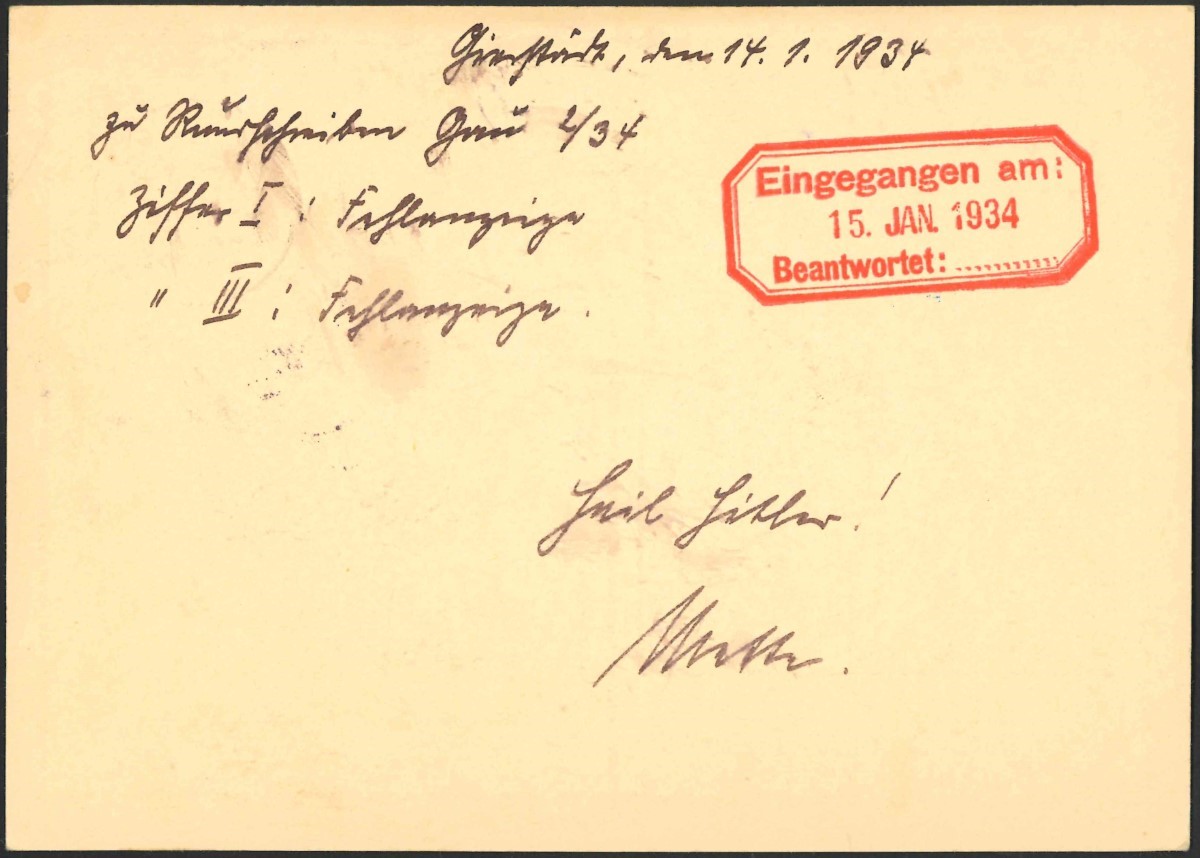 Gierstädt, den 14. 1. 1934
zu Rundschreiben Gau 2/34
Ziffer I : Fehlanzeige
" III : Fehlanzeige.
Eingegangen am:
15. JAN. 1934
Beantwortet: ...........
Heil Hitler!
Mette.